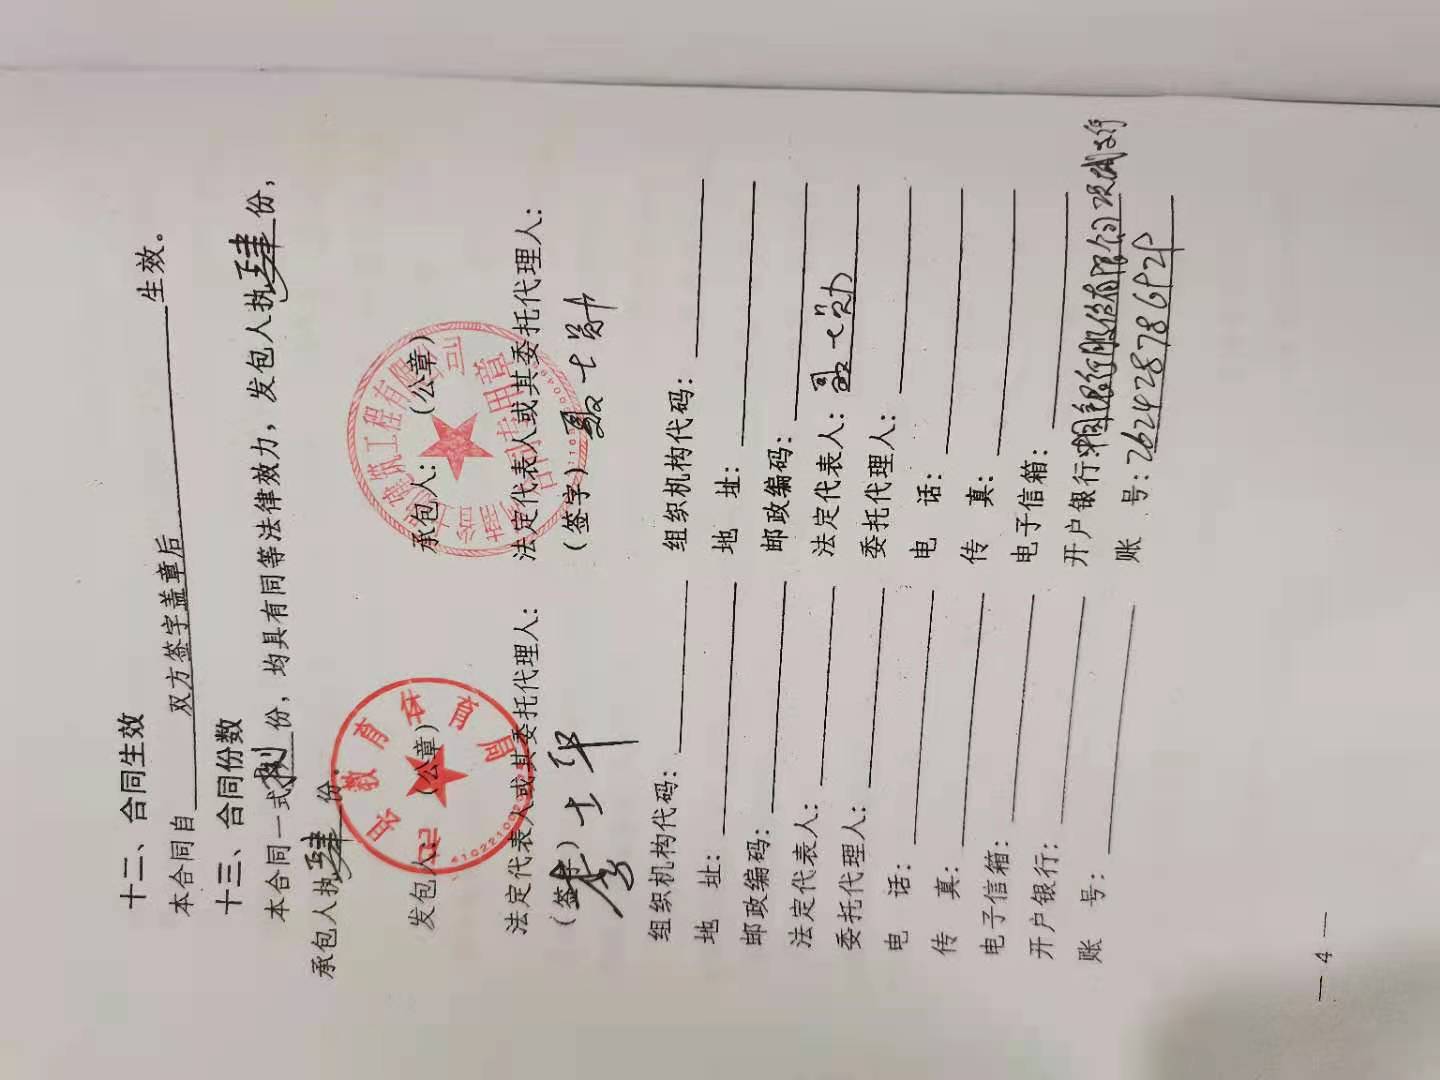 十二、合同生效
本合同自 双方签字盖章后 生效。
十三、合同份数
本合同一式捌份，均具有同等法律效力，发包人执肆份，
承包人执肆份。
发包人：（公章）
县教育体育局
承包人：（公章）
建筑工程有限公司
合同专用章
法定代表人或其委托代理人：
（签字）
法定代表人或其委托代理人：
（签字）
组织机构代码：
地 址：
邮政编码：
法定代表人：
委托代理人：
电 话：
传 真：
电子信箱：
开户银行：
账 号：
组织机构代码：
地 址：
邮政编码：
法定代表人：
委托代理人：
电 话：
传 真：
电子信箱：
开户银行：中国银行股份有限公司项城支行
账 号：262428786929
— 4 —